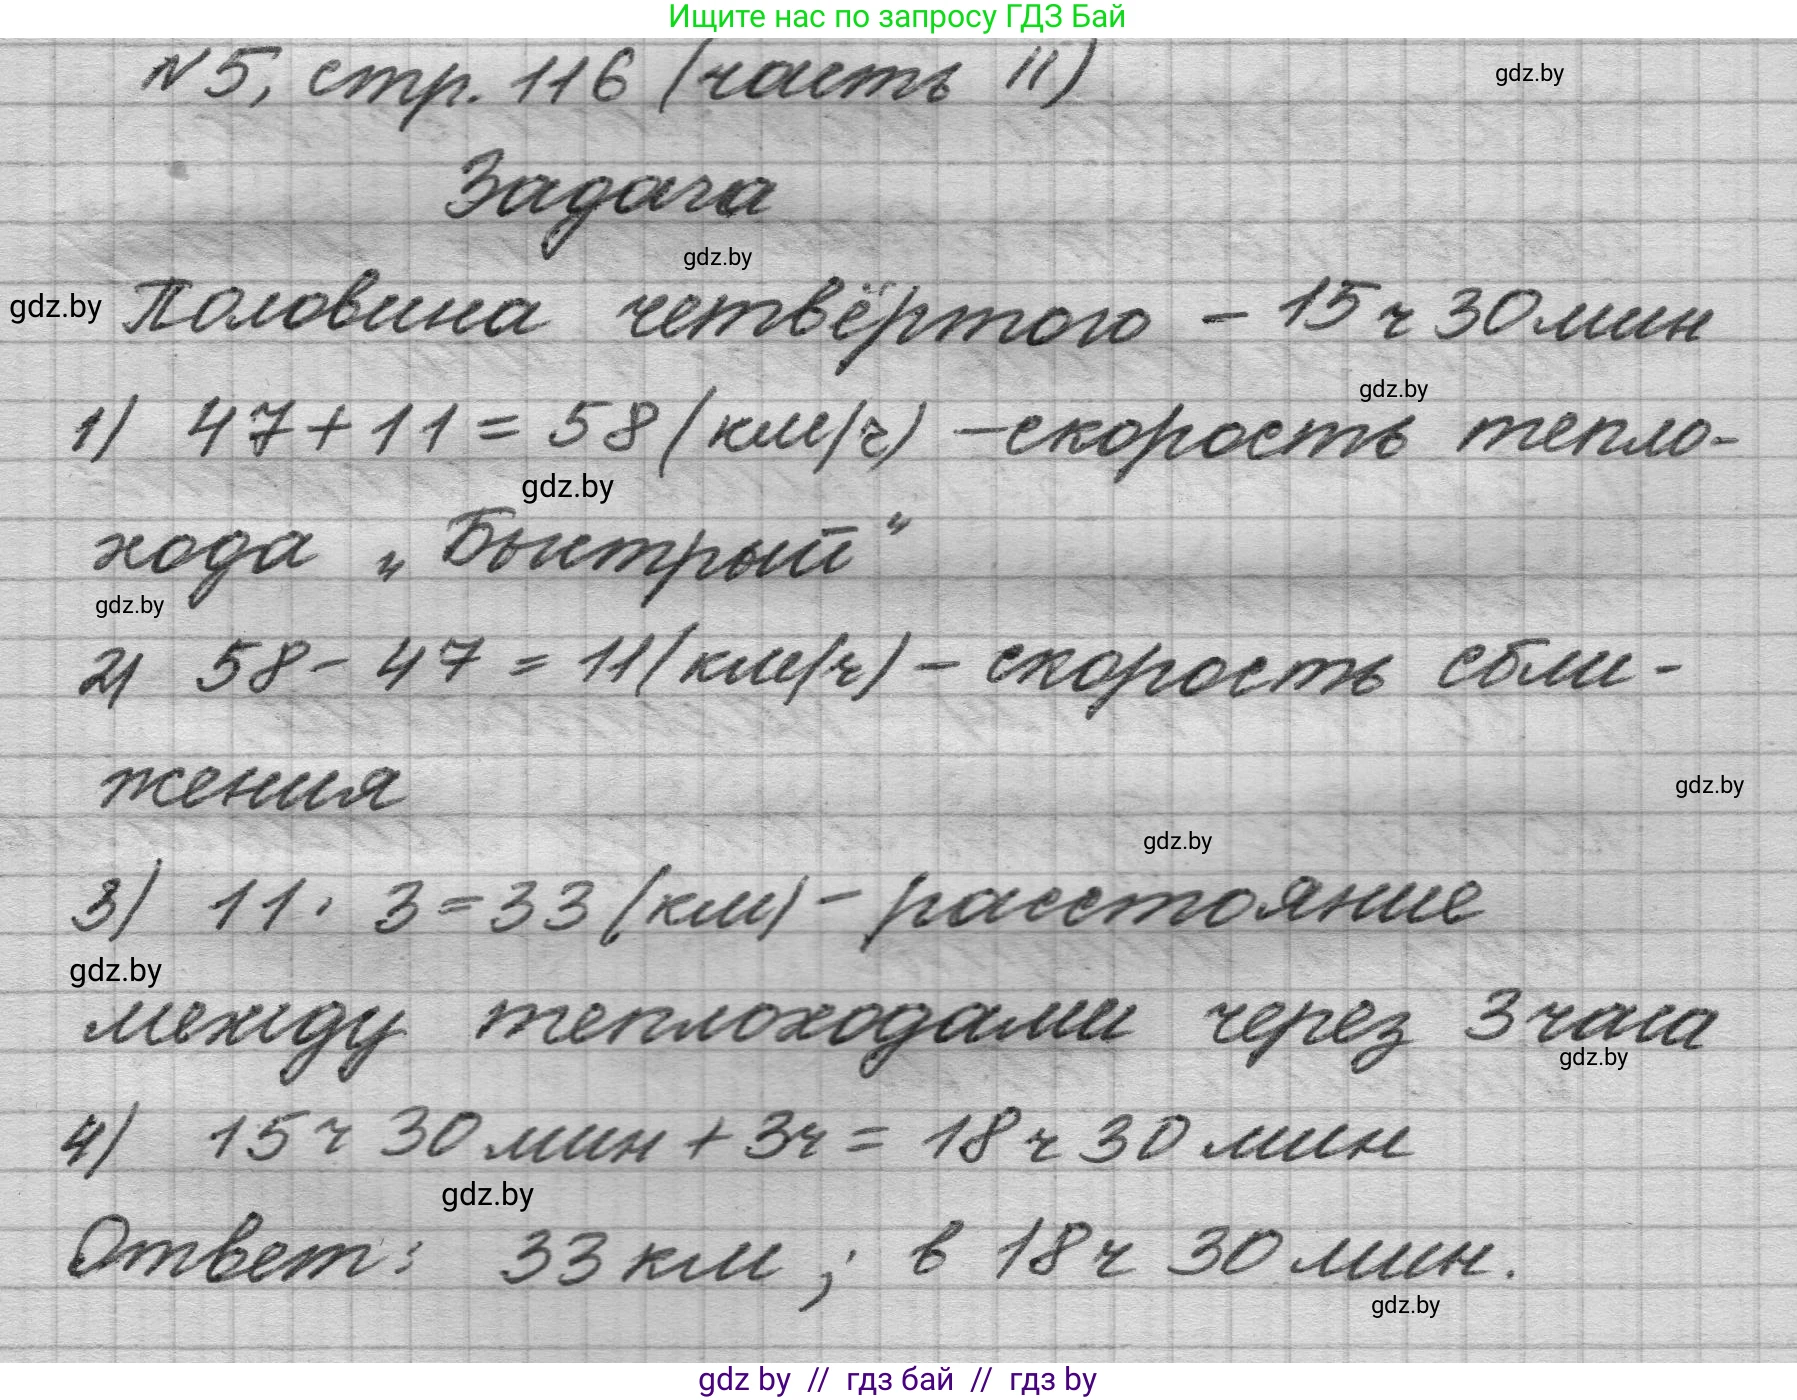 Ищите нас по запросу ГДЗ Бай
№5, стр. 116 (часть II)
gdz.by
Задача
gdz.by
gdz.by
Половина четвёртого – 15 ч 30 мин
gdz.by
1) 47 + 11 = 58 (км/ч) – скорость тепло-
gdz.by
хода „Быстрый“
gdz.by
2) 58 – 47 = 11 (км/ч) – скорость сбли-
жения
gdz.by
gdz.by
3) 11 · 3 = 33 (км) – расстояние
gdz.by
между теплоходами через 3 часа
gdz.by
4) 15 ч 30 мин + 3 ч = 18 ч 30 мин
gdz.by
Ответ: 33 км ; в 18 ч 30 мин.
gdz.by
gdz by // гдз бай // гдз by